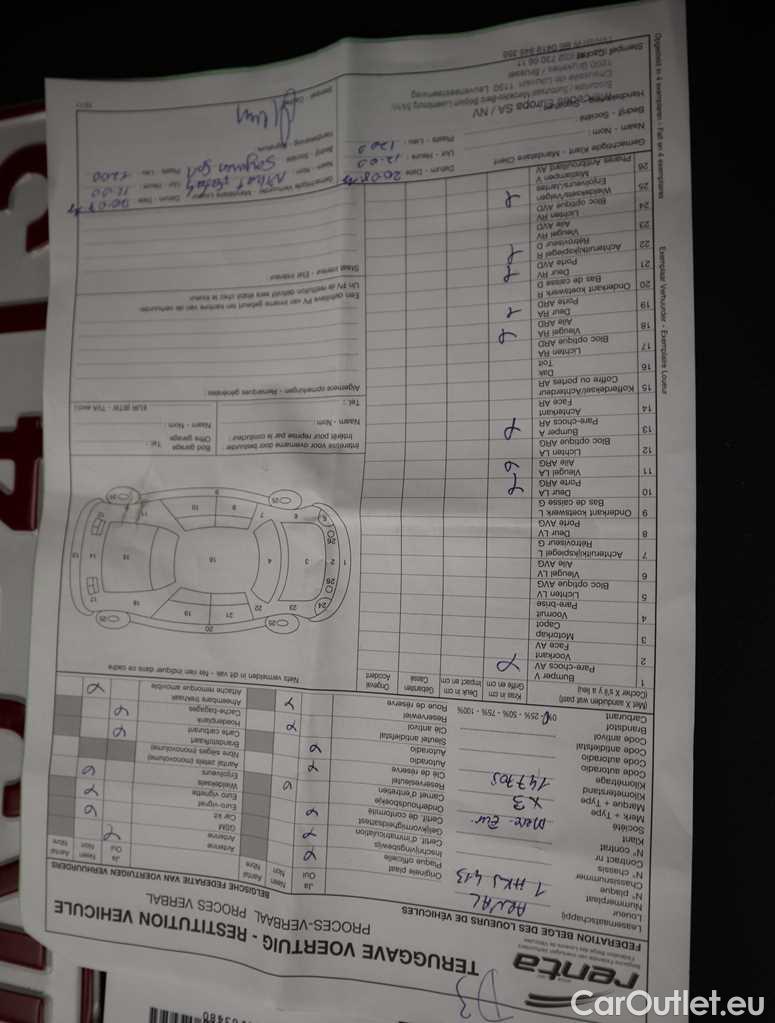 renta
Belgische Federatie van Voertuigverhuurders
Fédération Belge des Loueurs de Véhicules
D3
TERUGGAVE VOERTUIG - RESTITUTION VEHICULE
PROCES-VERBAAL PROCES VERBAL
FEDERATION BELGE DES LOUEURS DE VÉHICULES
BELGISCHE FEDERATIE VAN VOERTUIGEN VERHUURDERS
Leasemaatschappij
Loueur
ARVAL
Nummerplaat
N° plaque
1 HKJ 413
Chassisnummer
N° chassis
Contract nr
N° contrat
Klant
Société
Merc Eur
Merk + Type
Marque + Type
X3
Kilometerstand
Kilométrage
147705
Code autoradio
Code autoradio
Code antidiefstal
Code antivol
Brandstof
Carburant
0% - 25% - 50% - 75% - 100%
Ja
Oui
Neen
Non
Aantal
Nbre
Originele plaat
Plaque officielle
Inschrijvingsbewijs
Certif. d'immatriculation
Gelijkvormigheidsattest
Certif. de conformité
Onderhoudsboekje
Carnet d'entretien
Reservesleutel
Clé de réserve
Autoradio
Autoradio
Sleutel antidiefstal
Clé antivol
Reservewiel
Roue de réserve
Ja
Oui
Neen
Non
Aantal
Nbre
Antenne
Antenne
GSM
Car kit
Euro-vignet
Euro vignette
Wieldeksels
Enjoliveurs
Aantal zetels (monovolume)
Nbre sièges (monovolume)
Brandstofkaart
Carte carburant
Hoedenplank
Cache-bagages
Afneembare trekhaak
Attache remorque amovible
(Met X aanduiden wat past)
(Cocher X s'il y a lieu)
Kras in cm
Griffe en cm
Deuk in cm
Impact en cm
Gebarsten
Cassé
Ongeval
Accident
Niets vermelden in dit vak - Ne rien indiquer dans ce cadre
1 Bumper V
Pare-chocs AV
2 Voorkant
Face AV
3 Motorkap
Capot
4 Voorruit
Pare-brise
5 Lichten LV
Bloc optique AVG
6 Vleugel LV
Aile AVG
7 Achteruitkijkspiegel L
Rétroviseur G
8 Deur LV
Porte AVG
9 Onderkant koetswerk L
Bas de caisse G
10 Deur LA
Porte ARG
11 Vleugel LA
Aile ARG
12 Lichten LA
Bloc optique ARG
13 Bumper A
Pare-chocs AR
14 Achterkant
Face AR
15 Kofferdeksel/Achterdeur
Coffre ou portes AR
16 Dak
Toit
17 Lichten RA
Bloc optique ARD
18 Vleugel RA
Aile ARD
19 Deur RA
Porte ARD
20 Onderkant koetswerk R
Bas de caisse D
21 Deur RV
Porte AVD
22 Achteruitkijkspiegel R
Rétroviseur D
23 Vleugel RV
Aile AVD
24 Lichten RV
Bloc optique AVD
25 Wieldeksels/Velgen
Enjoliveurs/Jantes
26 Mistlampen V
Phares Antibrouillard AV
Interesse voor overname door bestuurder :
Intérêt pour reprise par le conducteur :
Naam - Nom :
Tel. :
Bod garage
Offre garage
Naam - Nom :
Tel. :
EUR (BTW - TVA excl.)
Algemene opmerkingen - Remarques générales :
Een definitieve PV van inname gebeurt ten kantore van de verhuurder.
Un PV de restitution définitif sera établi chez le loueur.
Staat interieur - Etat intérieur
Gemachtigde Klant - Mandataire Client
Naam - Nom :
Bedrijf - Société :
Handtekening - Signature
Datum - Date
Uur - Heure : 12.00
Plaats - Lieu : 1200
Europa SA / NV
Stempel - Cachet
Gemachtigde Verhuurder - Mandataire Loueur
Naam - Nom :
Bedrijf - Société :
Handtekening - Signature
Stempel - Cachet
Datum - Date
Uur - Heure : 12.00
Plaats - Lieu : 1200
Opgesteld in 4 exemplaren - Fait en 4 exemplaires
Exemplaar Verhuurder - Exemplaire Loueur
CarOutlet.eu